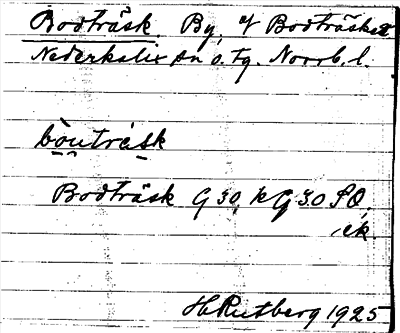 Bodträsk. By, vf Bodträsket
Nederkalix sn o. tg. Norrb. l.
bòuträsk
Bodträsk G 30, kG 30 SO,
ek.
H Rutberg 1925